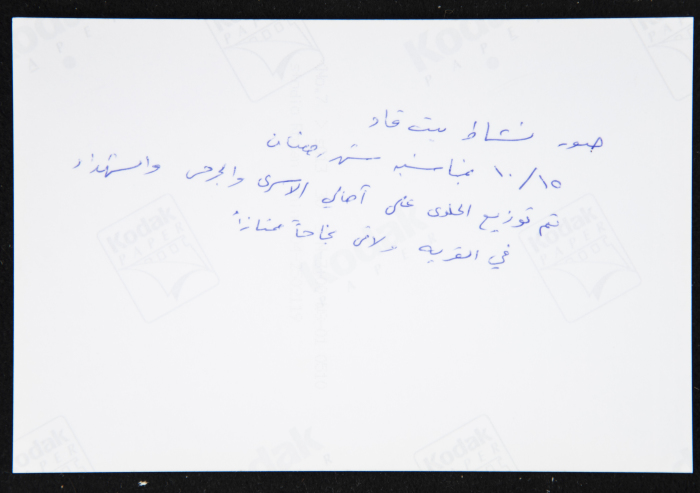 صور نشاط بيت قاد
١٠/١٥ بمناسبه شهر رمضان
تم توزيع الحلوى على أهالي الاسرى والجرحى والشهداء
في القريه ولاقى نجاحاً ممتازاً
Kodak
PAPER
Kodak
Kodak
PAPER
Kodak
Kodak
PAPER
Kodak